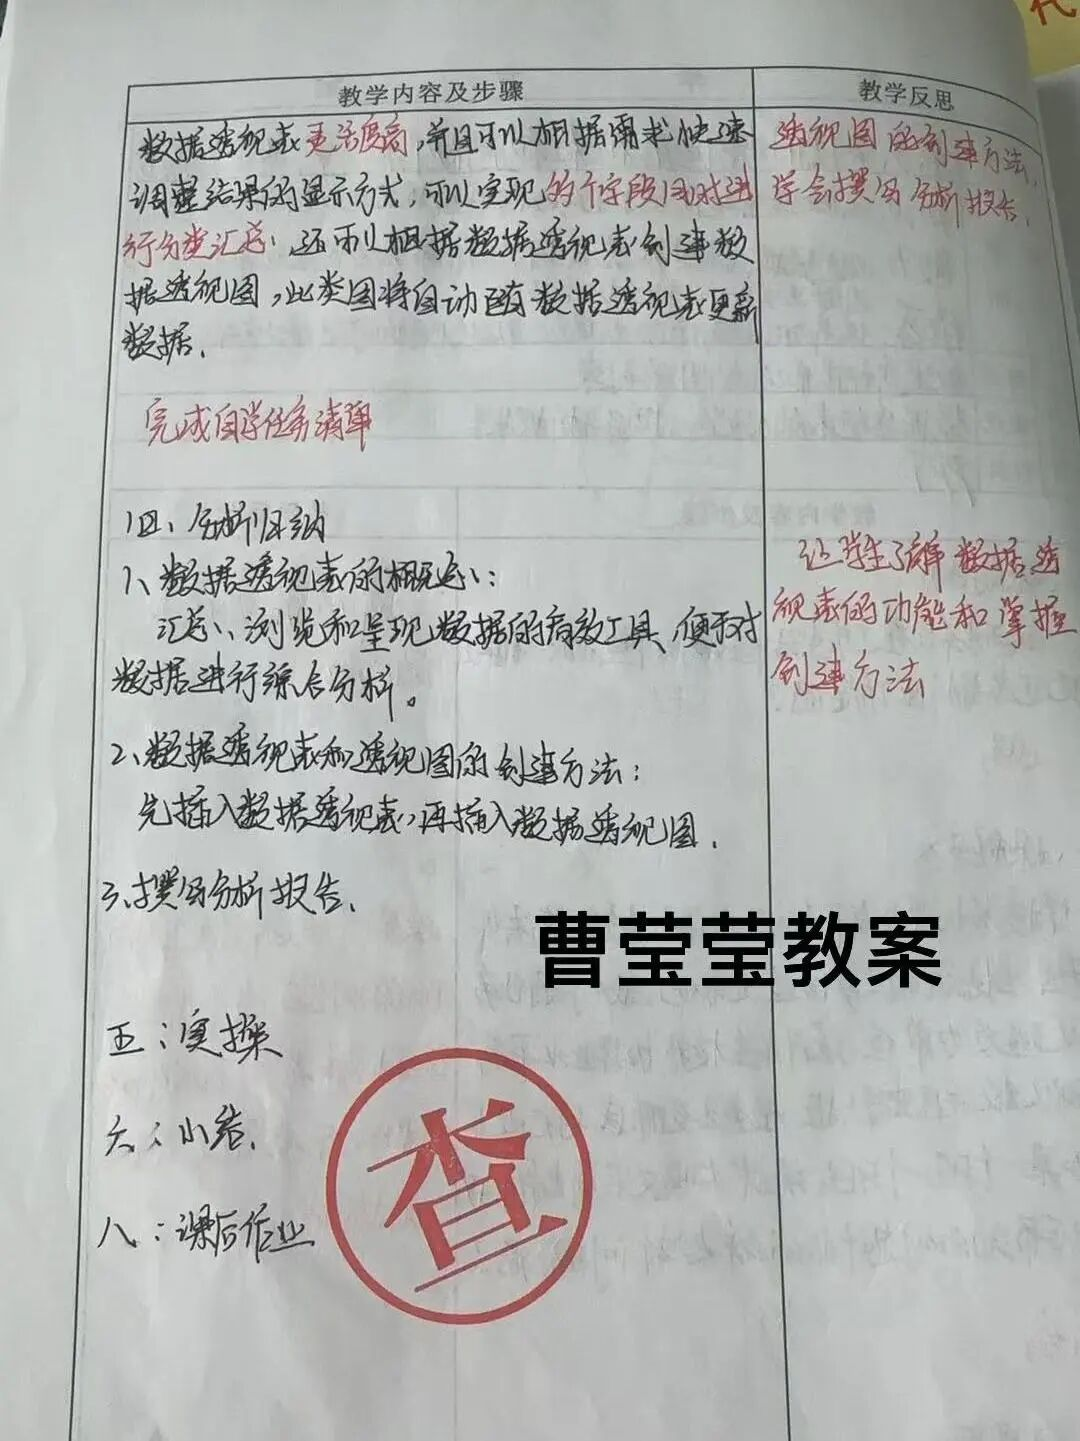 教学内容及步骤
教学反思
数据透视表更灵活度高,并且可以根据需求快速
调整结果的显示方式,可以实现多个字段同时进
行分类汇总,还可以根据数据透视表创建数
据透视图,此类图将自动随着数据透视表更新
数据.
完成自学任务清单
四、分析归纳
1、数据透视表的概念:
汇总、浏览和呈现数据的有效工具、便于对
数据进行综合分析。
2、数据透视表和透视图的创建方法:
先插入数据透视表,再插入数据透视图.
3、撰写分析报告.
五:实操
六:小结.
八:课后作业
透视图的创建方法,
学会撰写分析报告.
让学生了解数据透
视表的功能和掌握
创建方法
曹莹莹教案
查